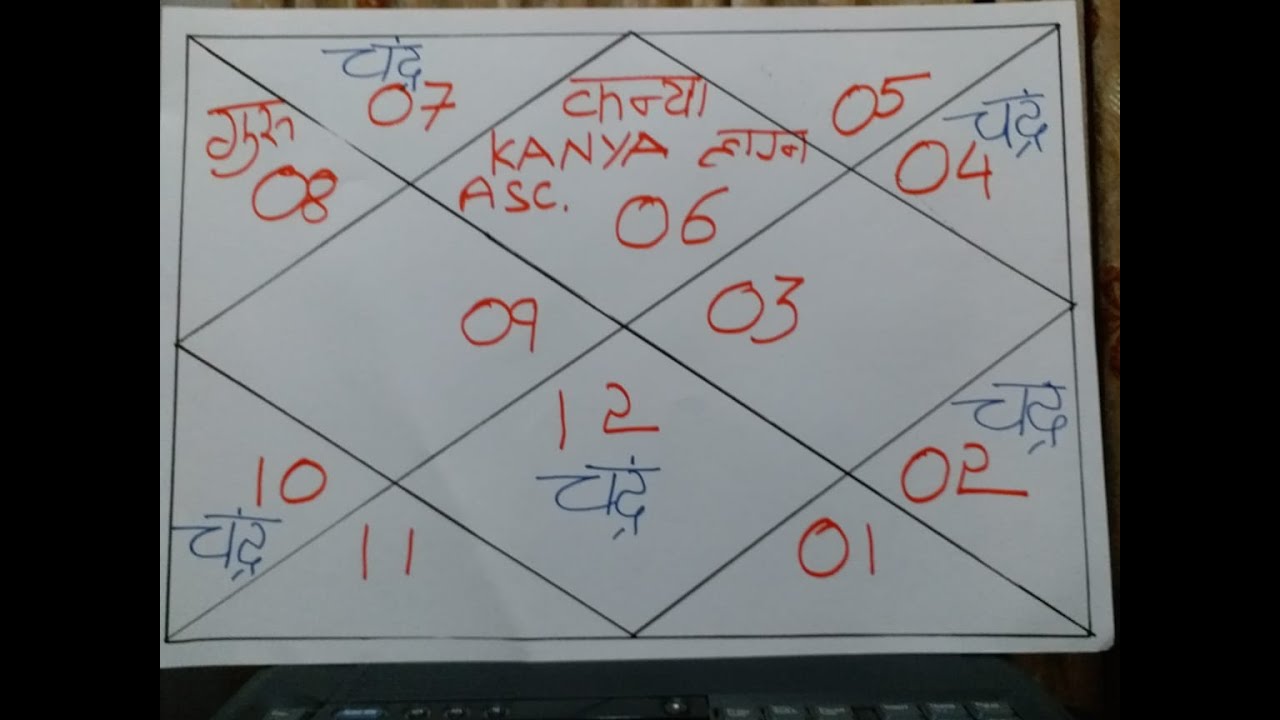 चंद्र
07
गुरु
08
कन्या
KANYA लग्न
ASC.
06
05
चंद्र
04
09
03
12
चंद्र
10
चंद्र
11
चंद्र
02
01